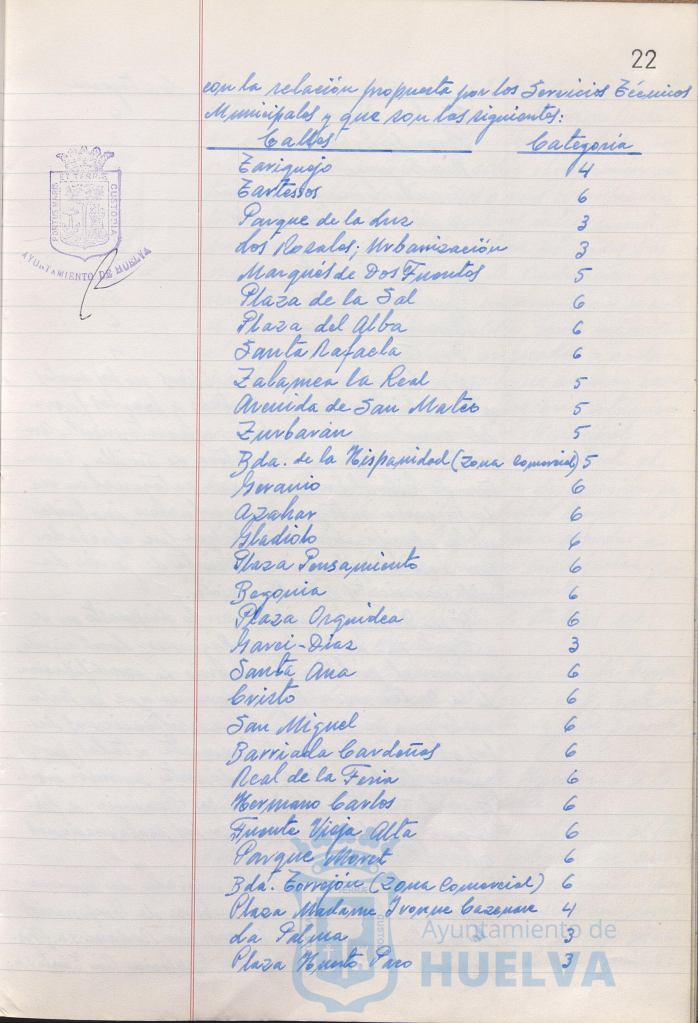 22
con la relación propuesta por los Servicios Técnicos
Municipales y que son las siguientes:
Calles Categoría
Tariquejo 4
Tartessos 6
Parque de la Luz 3
Los Rosales; Urbanización 3
Marqués de Dos Fuentes 5
Plaza de la Sal 6
Plaza del Alba 6
Santa Rafaela 6
Zalamea la Real 5
Avenida de San Mateo 5
Zurbarán 5
Bda. de la Hispanidad (Zona Comercial) 5
Geranio 6
Azahar 6
Gladiolo 6
Plaza Pensamiento 6
Begonia 6
Plaza Orquidea 6
Garci-Diaz 3
Santa Ana 6
Cristo 6
San Miguel 6
Barriada Cardeñas 6
Real de la Feria 6
Hermano Carlos 6
Fuente Vieja Alta 6
Parque Moret 6
Bda. Torrejón (Zona Comercial) 6
Plaza Madame Ivonne Cazenave 4
La Palma 3
Plaza Huerto Paco 3
PORTUS MARIS ET TERRÆ CUSTODIA
AYUNTAMIENTO DE HUELVA
Ayuntamiento de
HUELVA